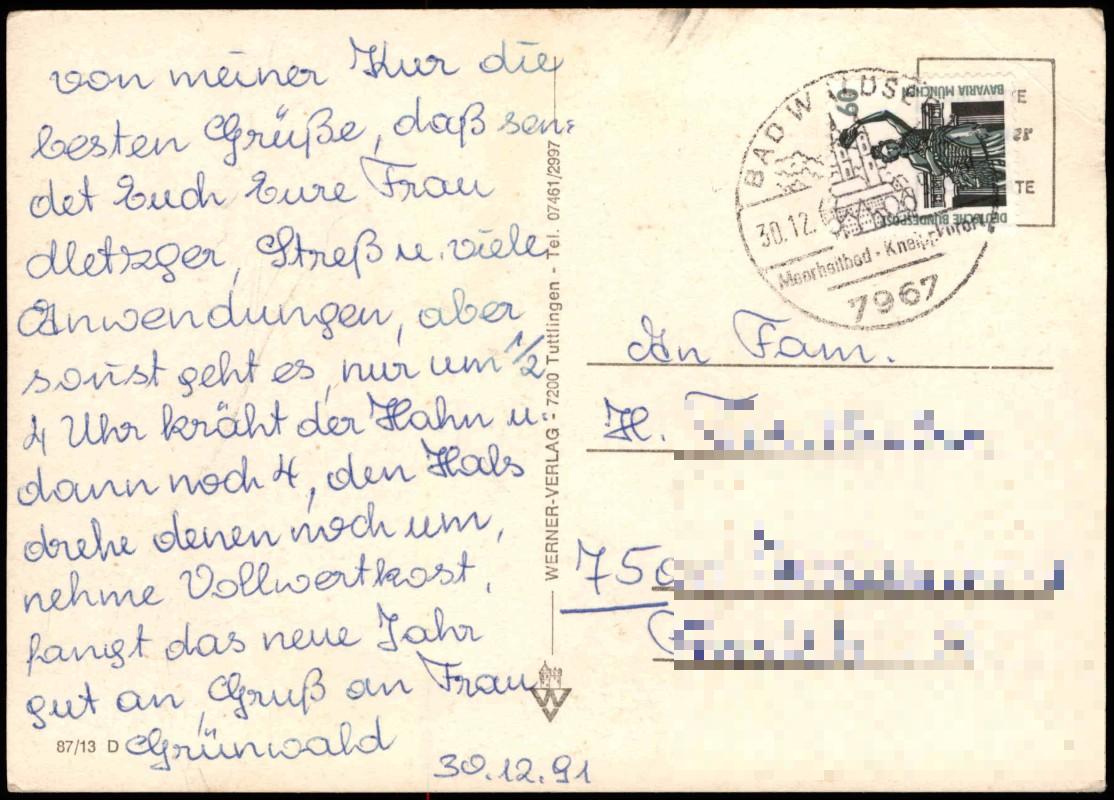 von meiner Kur die
besten Grüße, daß sen-
det Euch Eure Frau
Metzger, Streß u. viele
Anwendungen, aber
sonst geht es, nur um 1/2
4 Uhr kräht der Hahn u.
dann noch 4, den Hals
drehe denen noch um,
nehme Vollwertkost,
fangt das neue Jahr
gut an, Gruß an Frau
Grünwald
30.12.91
87/13 D
WERNER-VERLAG - 7200 Tuttlingen - Tel. 07461/2997
BAD W
30.12.
Moorheilbad · Kneippkurort
7967
60
BAVARIA MÜNCHEN
DEUTSCHE BUNDESPOST
An Fam.
H.
750